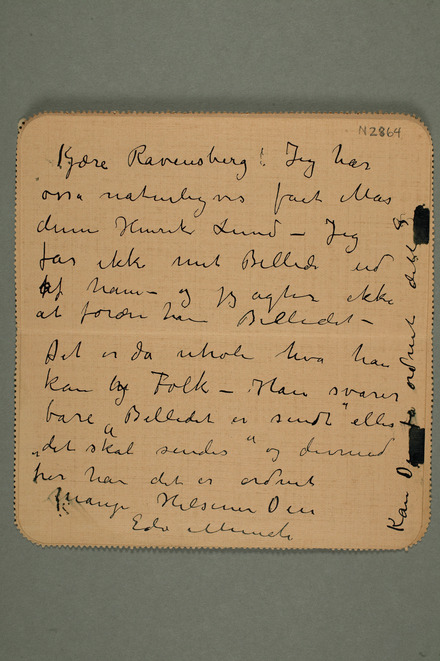 N 2864
Kjære Ravensberg! Jeg har
ossa naturligvis faat Mas
drim Henrik Lund – Jeg
far ikke mit Billede ud
af ham – og jeg agter ikke
at foræra ham Billedet –
Det er da utrole hva han
kan by Folk – Han svarer
bare "Billedet er sendt" eller
"det skal sendes" og dermed
tror han det er ordnet
Mange Hilsener Din
Edv Munch
Kan Du fa ordnet dette?